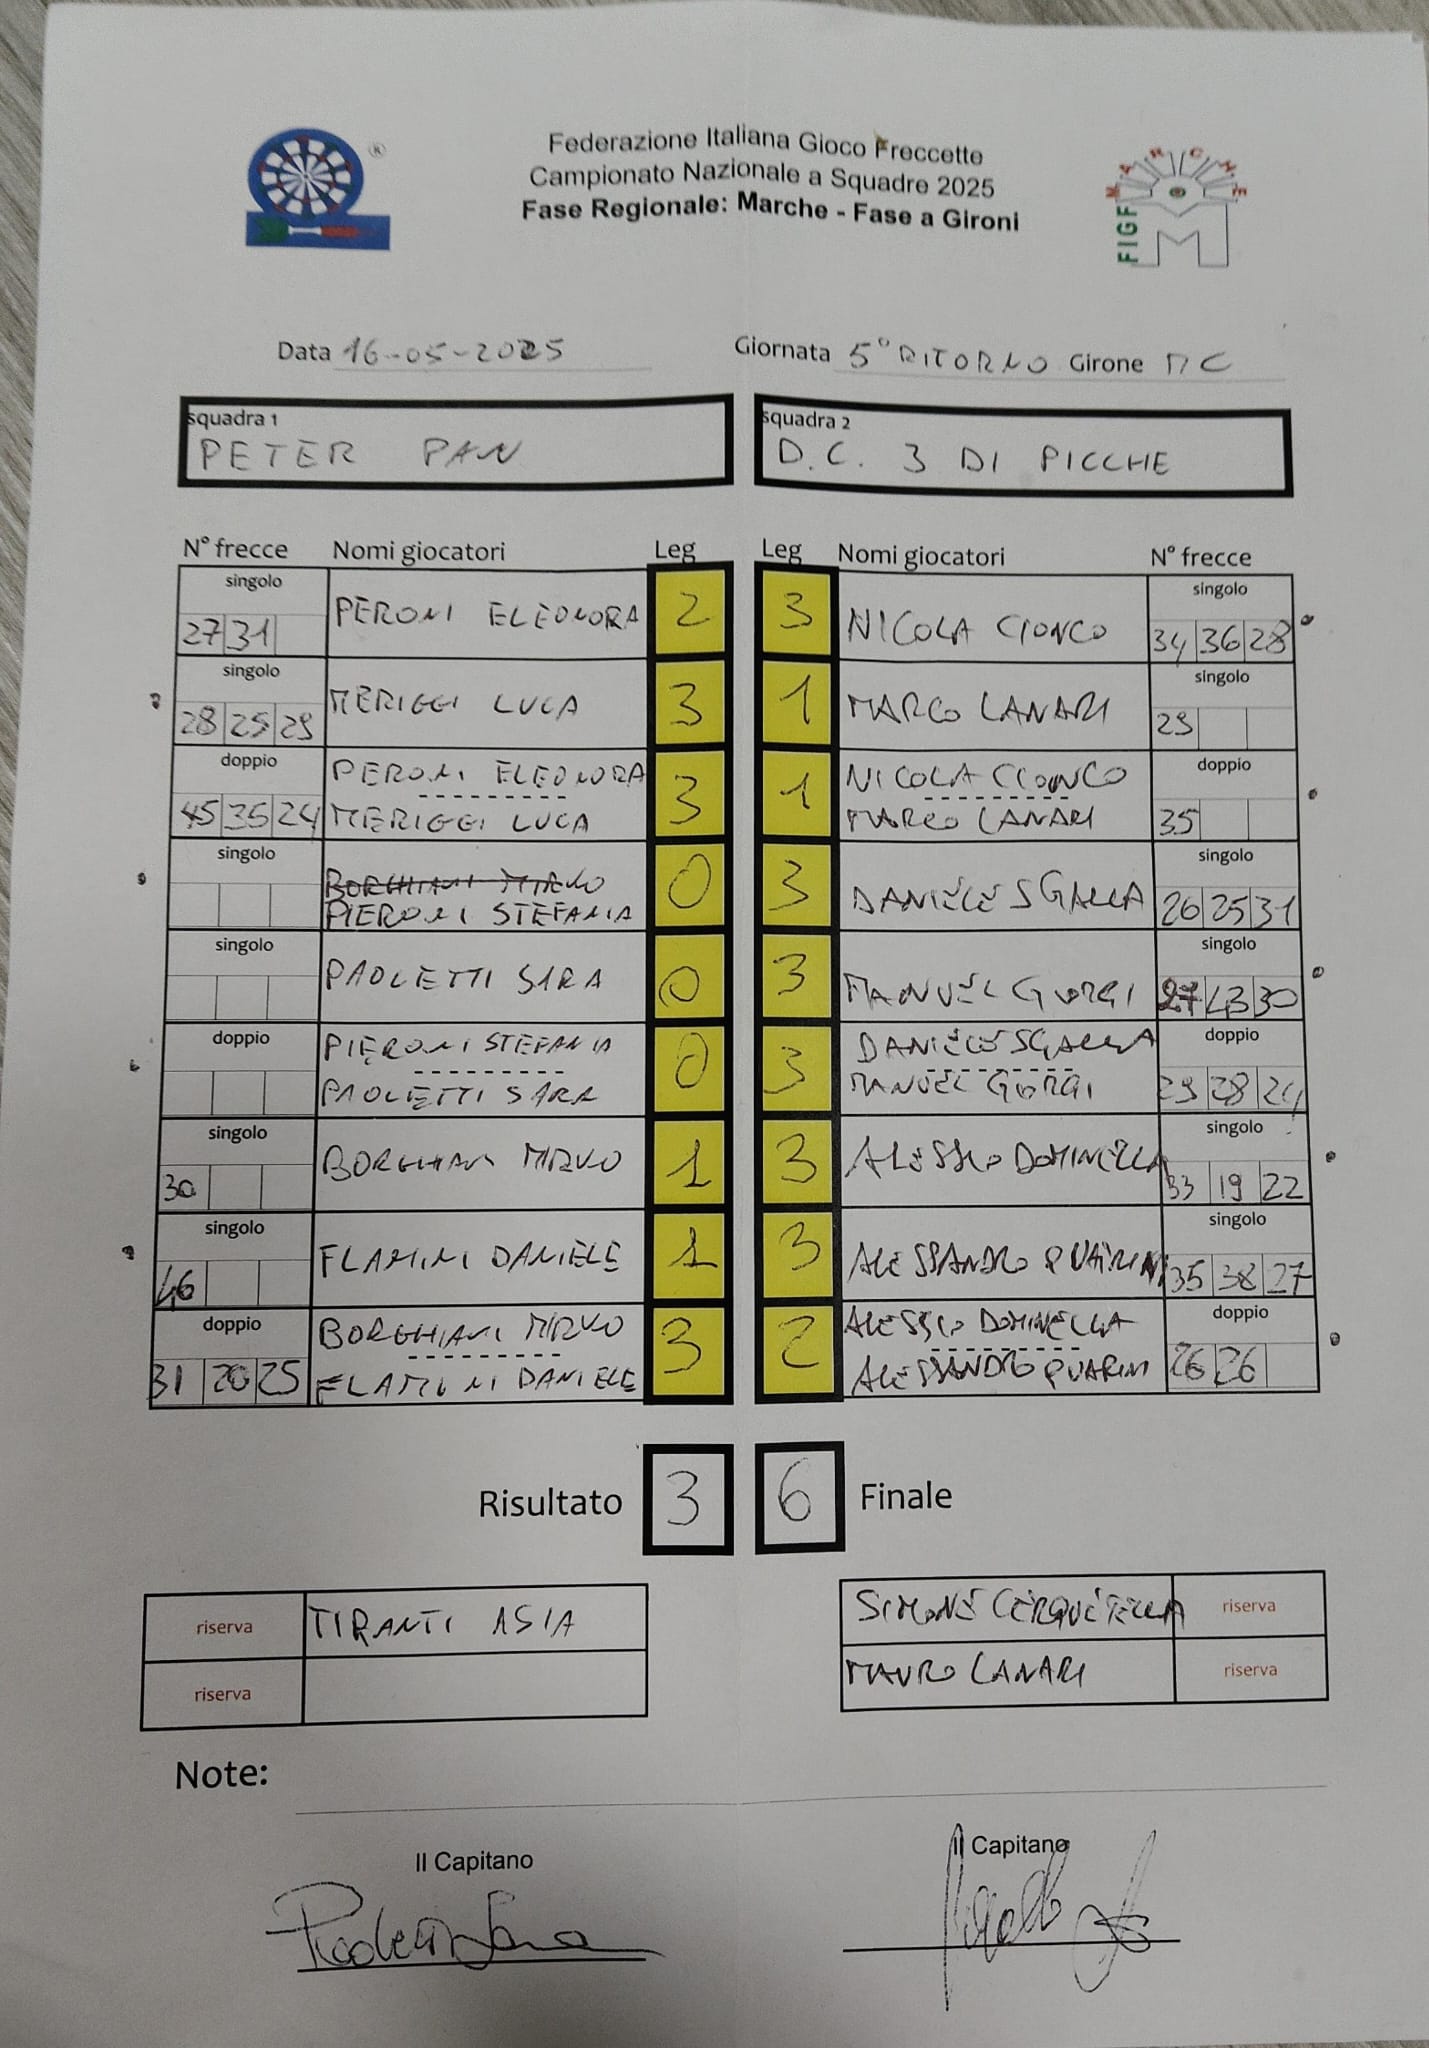 Federazione Italiana Gioco Freccette
Campionato Nazionale a Squadre 2025
Fase Regionale: Marche - Fase a Gironi
®
MARCHE
FIGF
M
Data 16-05-2025
Giornata 5° RITORNO Girone MC
squadra 1
PETER PAN
squadra 2
D.C. 3 DI PICCHE
N° frecce Nomi giocatori Leg Leg Nomi giocatori N° frecce
singolo singolo
27 31 PERONI ELEONORA 2 3 NICOLA CIONCO 34 36 28
singolo singolo
28 25 29 MERIGGI LUCA 3 1 MARCO LANARI 29
doppio PERONI ELEONORA 3 1 NICOLA CIONCO doppio
45 35 24 MERIGGI LUCA MARCO LANARI 35
singolo BORGHIANI MIRKO singolo
PIERONI STEFANIA 0 3 DANIELE SGALLA 26 25 31
singolo singolo
PAOLETTI SARA 0 3 MANUEL GIORGI 27 43 30
doppio PIERONI STEFANIA 0 3 DANIELE SGALLA doppio
PAOLETTI SARA MANUEL GIORGI 29 28 24
singolo singolo
30 BORGHIANI MIRKO 1 3 ALESSIO DOMINELLA 33 19 22
singolo singolo
46 FLAMINI DANIELE 1 3 ALESSANDRO QUARINI 35 38 27
doppio BORGHIANI MIRKO 3 2 ALESSIO DOMINELLA doppio
31 20 25 FLAMINI DANIELE ALESSANDRO QUARINI 26 26
Risultato 3 6 Finale
riserva TIRANTI ASIA SIMONE CERQUETELLA riserva
riserva MAURO LANARI riserva
Note:
Il Capitano
Il Capitano
Paoletti Sara